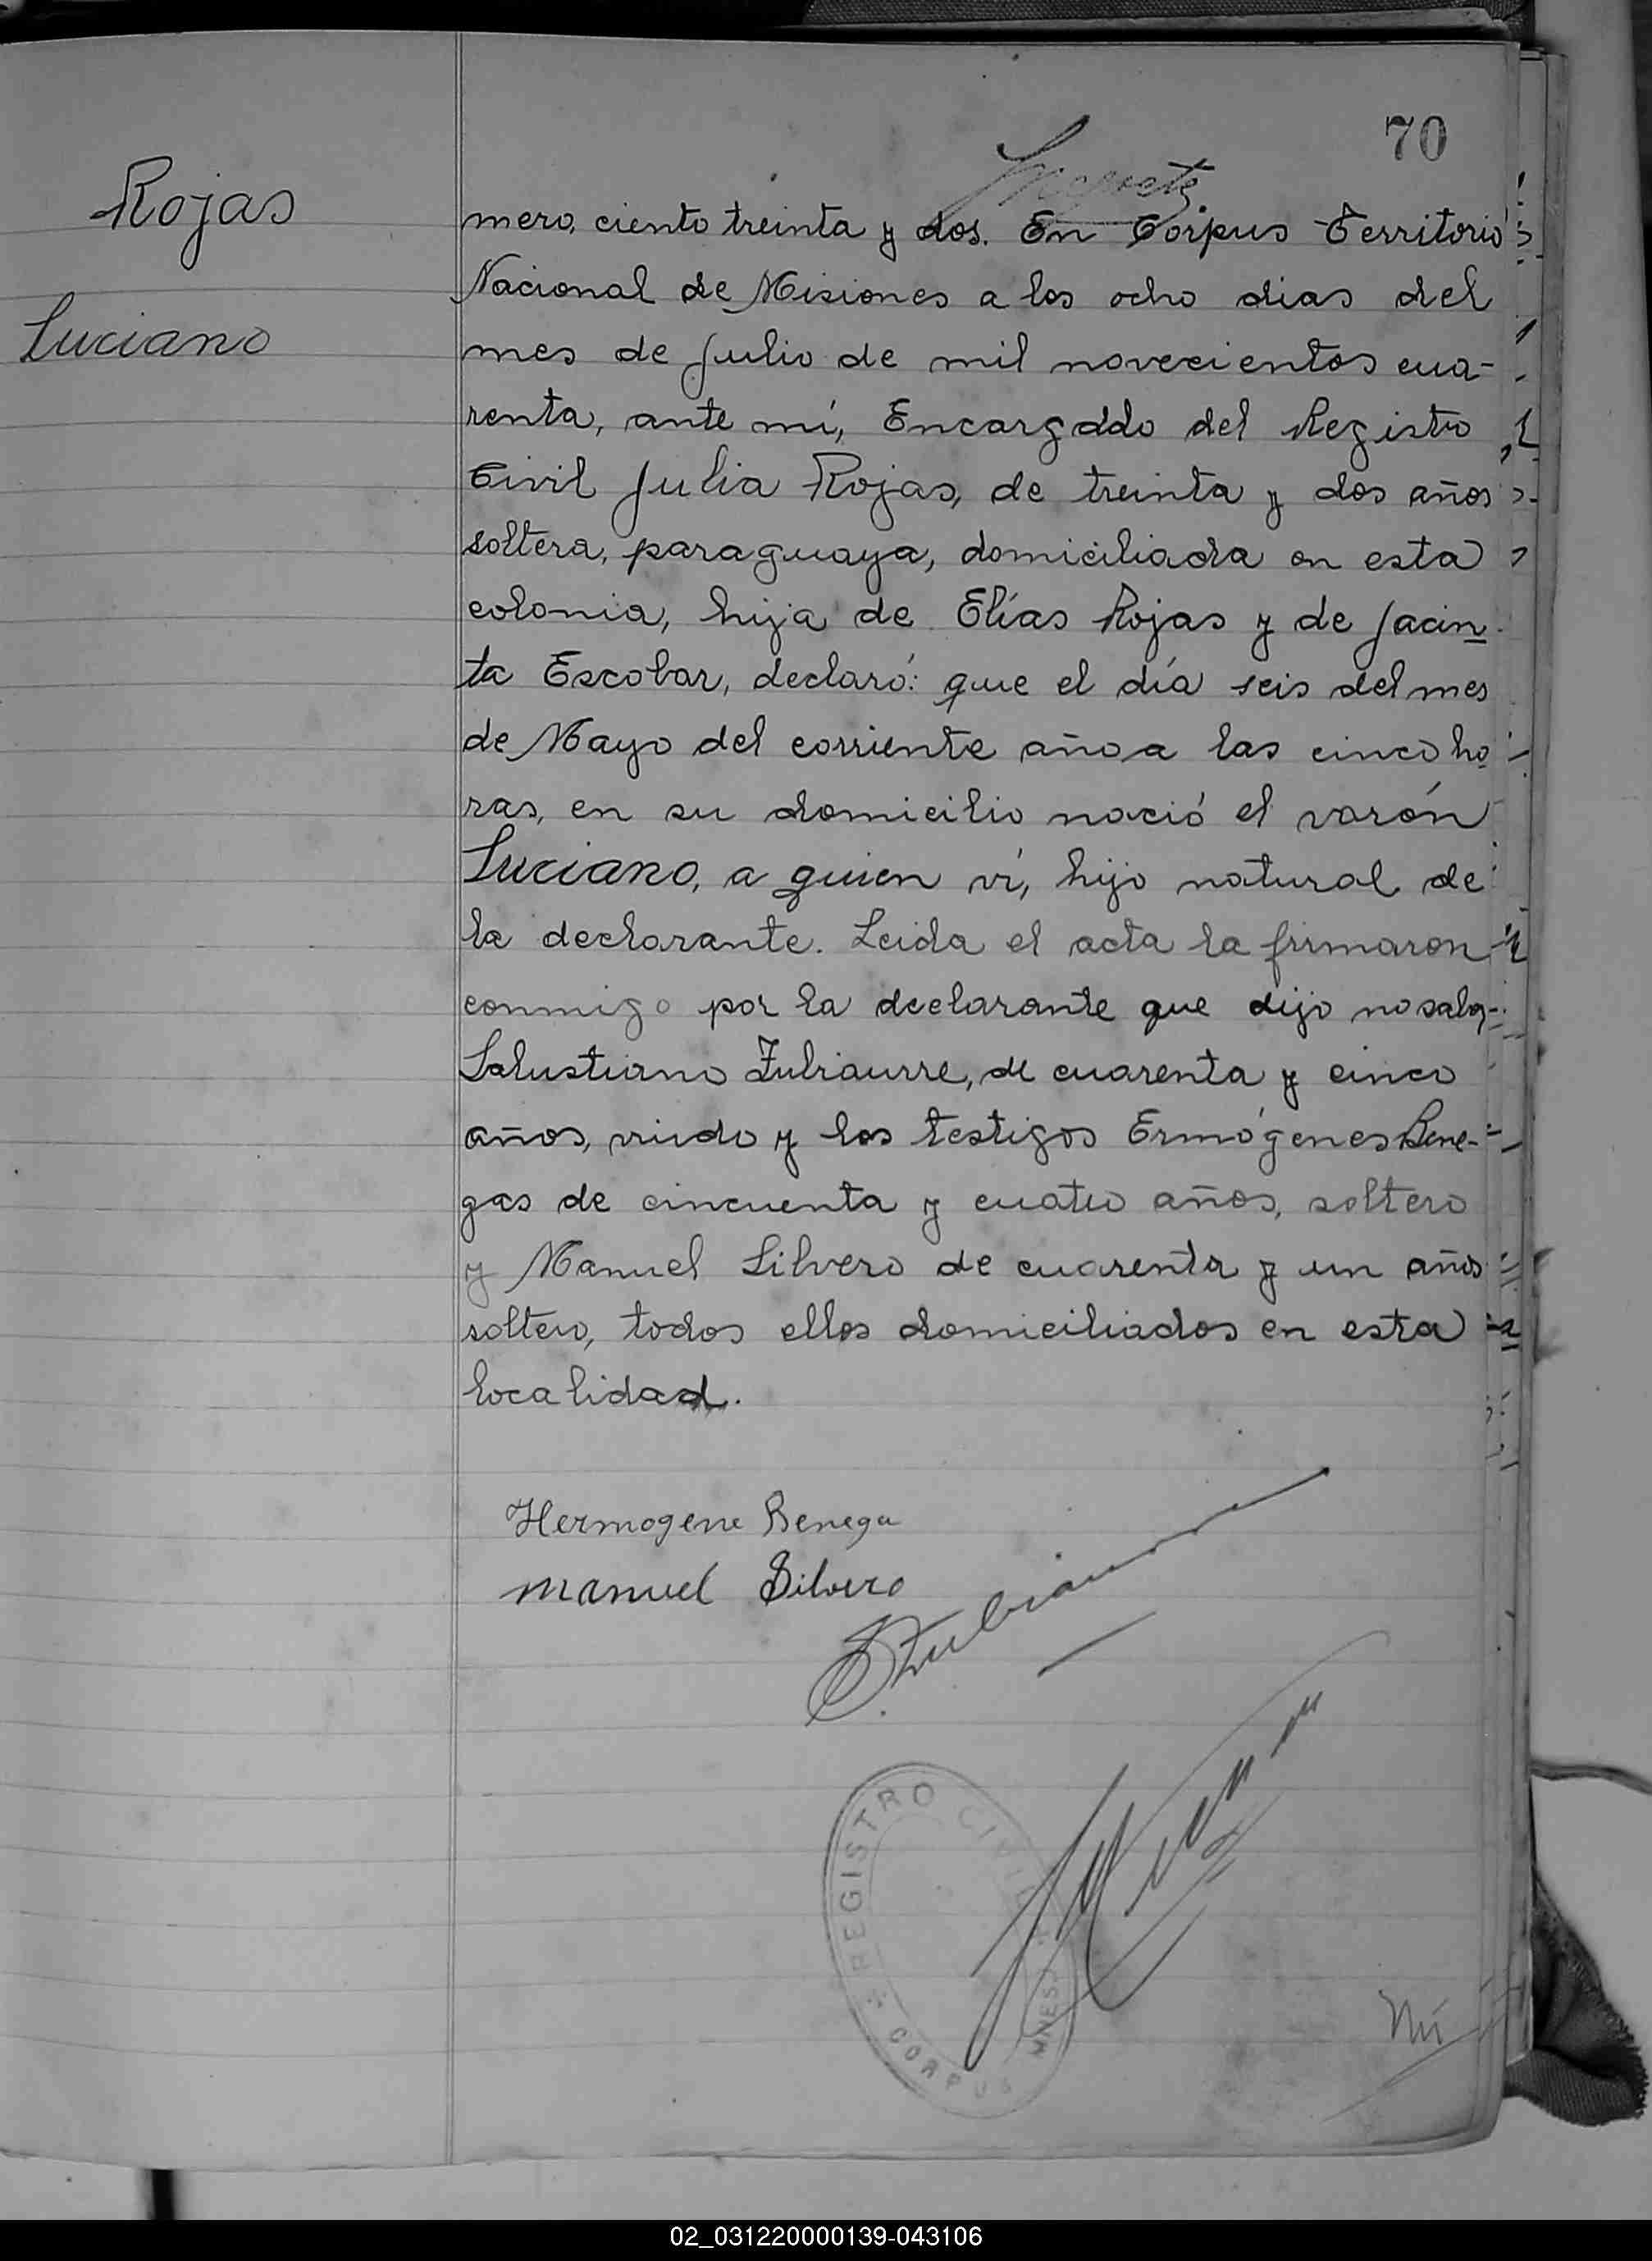 70
Rojas
Luciano
mero, ciento treinta y dos. En Corpus Territorio
Nacional de Misiones a los ocho dias del
mes de Julio de mil novecientos cua-
renta, ante mí, Encargado del Registro
Civil Julia Rojas, de treinta y dos años
soltera, paraguaya, domiciliada en esta
colonia, hija de Elías Rojas y de Jacin
ta Escobar, declaró: que el día seis del mes
de Mayo del corriente año a las cinco ho
ras, en su domicilio nació el varón
Luciano, a quien ví, hijo natural de
la declarante. Leida el acta la firmaron
conmigo por la declarante que dijo no saber
Salustiano Zubiaurre, de cuarenta y cinco
años, viudo y los testigos Ermógenes Bene-
gas de cincuenta y cuatro años, soltero
y Manuel Silvero de cuarenta y un años
soltero, todos ellos domiciliados en esta
localidad.
Hermogene Benega
Manuel Silvero
REGISTRO CIVIL
CORPUS MNES
Nú
02_031220000139-043106